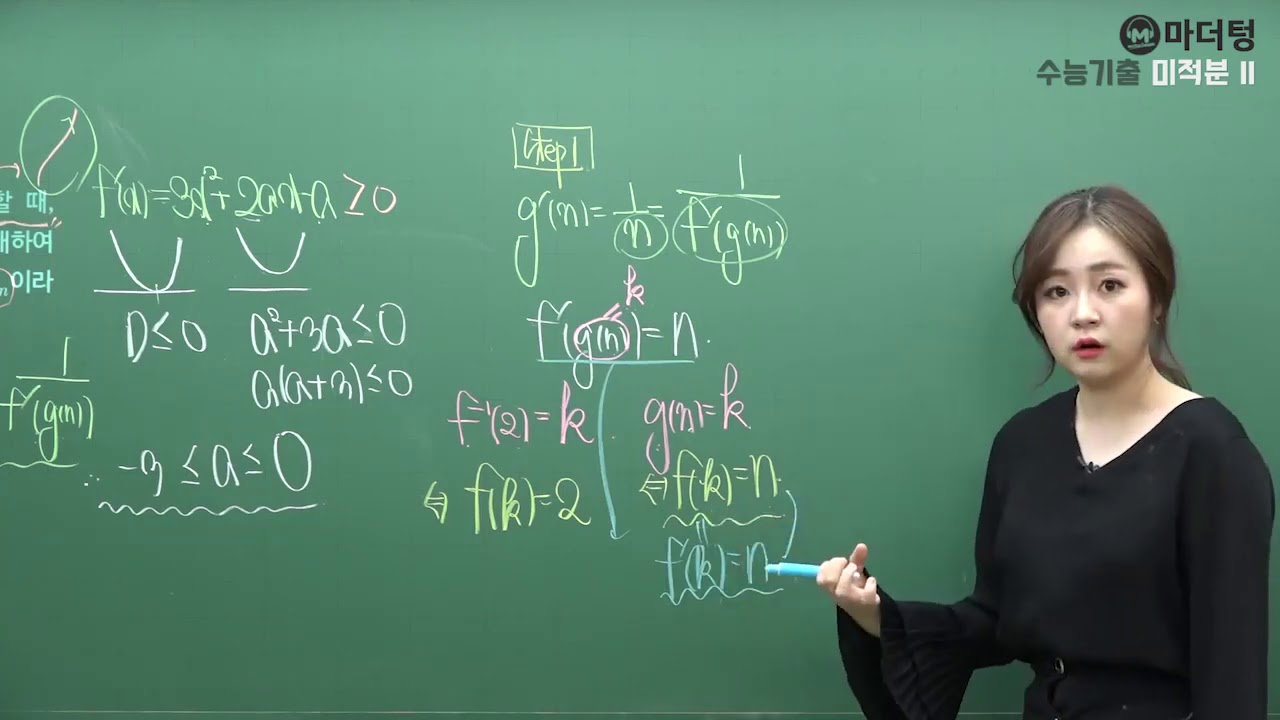 마더텅
수능기출 미적분 II
할 때,
대하여
n이라
f'(x)=3x²+2ax-a≥0
D≤0
a²+3a≤0
a(a+3)≤0
∴ -3≤a≤0
1
f'(g(n))
Step1
g'(n)=1/n=1/f'(g(n))
k
f'(g(n))=n.
f⁻¹(2)=k
⇔ f(k)=2
g(n)=k
⇔ f(k)=n.
f'(k)=n